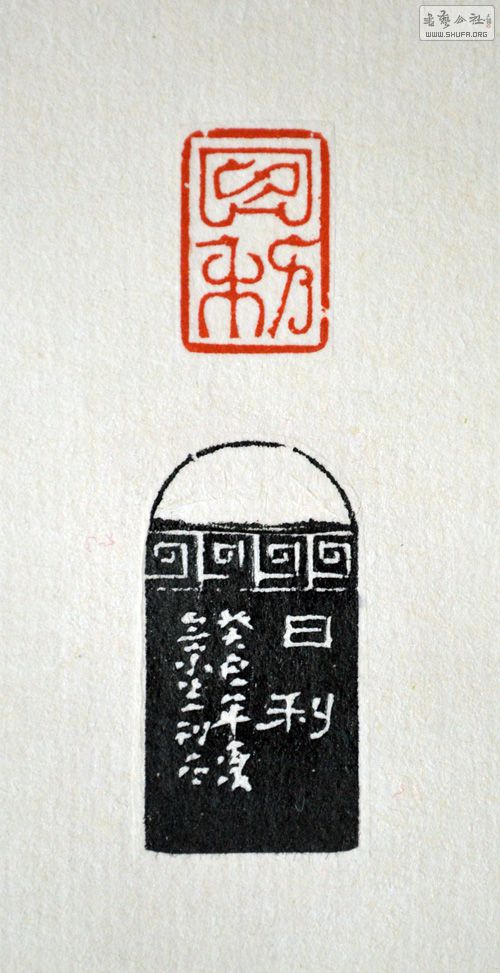 書藝公社
WWW.SHUFA.ORG
日利
日利
癸巳年夏